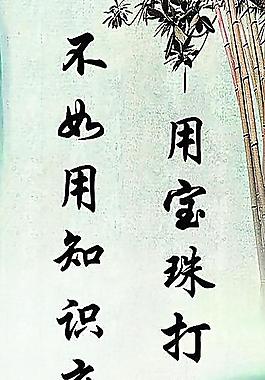 用宝珠打
不如用知识